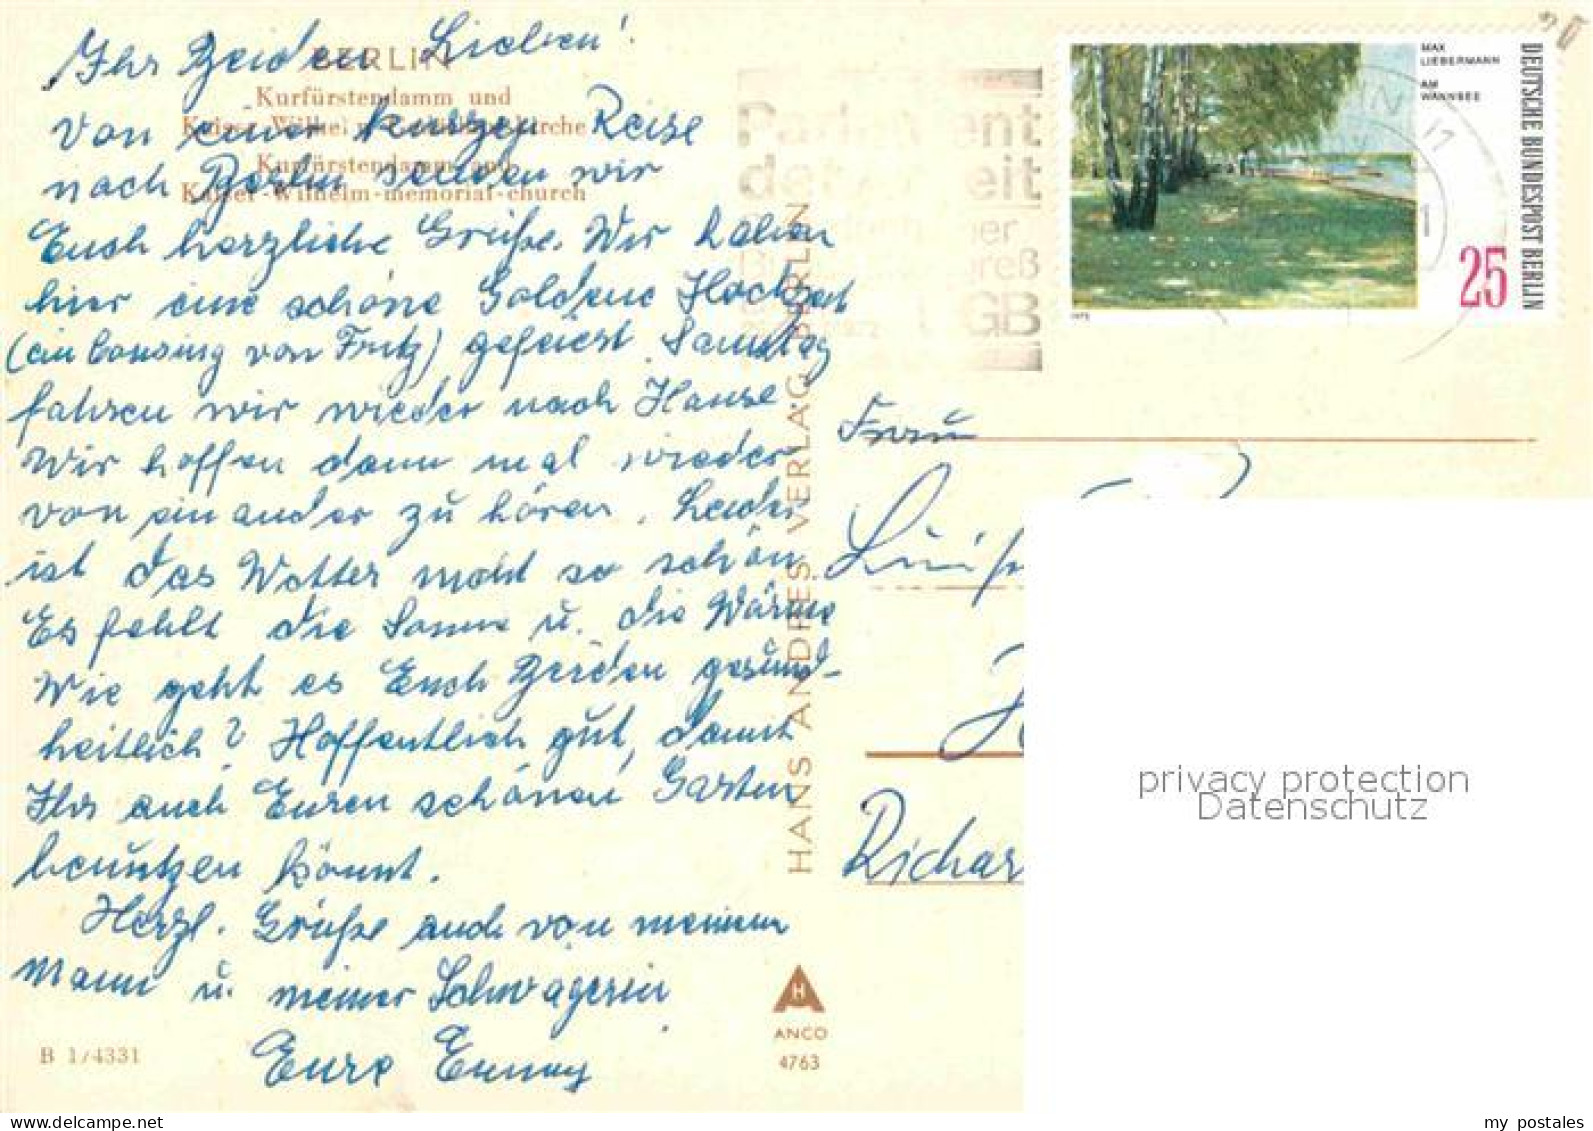 Ihr Beiden Lieben!
BERLIN
Kurfürstendamm und
von einer kurzen Reise
nach Berlin senden wir
Kaiser-Wilhelm-memorial-church
Euch herzliche Grüße. Wir haben
hier eine schöne Goldene Hochzeit
(ein Cousing von Fritz) gefeiert. Samstag
fahren wir wieder nach Hause
Wir hoffen dann mal wieder
von einander zu hören. Leider
ist das Wetter nicht so schön
Es fehlt die Sonne u. die Wärme
Wie geht es Euch Beiden gesund-
heitlich? Hoffentlich gut, damit
Ihr auch Euren schönen Garten
benutzen könnt.
Herzl. Grüße auch von meinem
Mann u. meiner Schwägerin
Eure Emmy
B 1/4331
HANS ANDRES VERLAG BERLIN
H
ANCO
4763
MAX
LIEBERMANN
AM
WANNSEE
DEUTSCHE BUNDESPOST BERLIN
25
1972
Frau
Richar
privacy protection
Datenschutz
my postales
delcampe.net